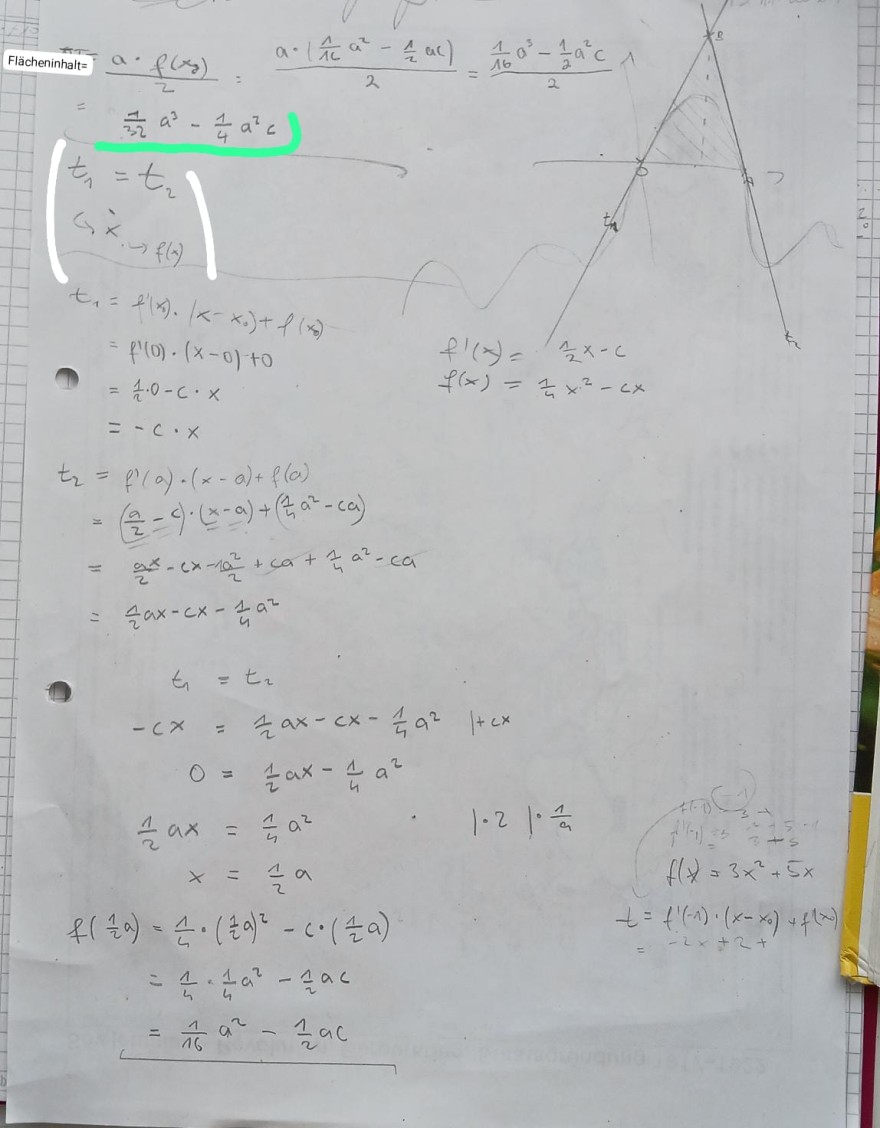 Flächeninhalt= a · f(x₀)/2 = a · (1/16 a² − 1/2 ac)/2 = (1/16 a³ − 1/2 a²c)/2
= 1/32 a³ − 1/4 a² c
t₁ = t₂
↳ x
→ f(x)
B
0
A
t₁
t₂
t₁ = f'(x₀) · (x − x₀) + f(x₀)
= f'(0) · (x − 0) + 0
= 1/2 · 0 − c · x
= − c · x
f'(x) = 1/2 x − c
f(x) = 1/4 x² − cx
t₂ = f'(a) · (x − a) + f(a)
= (a/2 − c) · (x − a) + (1/4 a² − ca)
= ax/2 − cx − 1a²/2 + ca + 1/4 a² − ca
= 1/2 ax − cx − 1/4 a²
t₁ = t₂
− cx = 1/2 ax − cx − 1/4 a² |+ cx
0 = 1/2 ax − 1/4 a²
1/2 ax = 1/4 a² |· 2 |· 1/a
x = 1/2 a
f(1/2 a) = 1/4 · (1/2 a)² − c · (1/2 a)
= 1/4 · 1/4 a² − 1/2 ac
= 1/16 a² − 1/2 ac
f(x) = 3x² + 5x
t = f'(-1) · (x − x₀) + f(x₀)
= −2x + 2 +